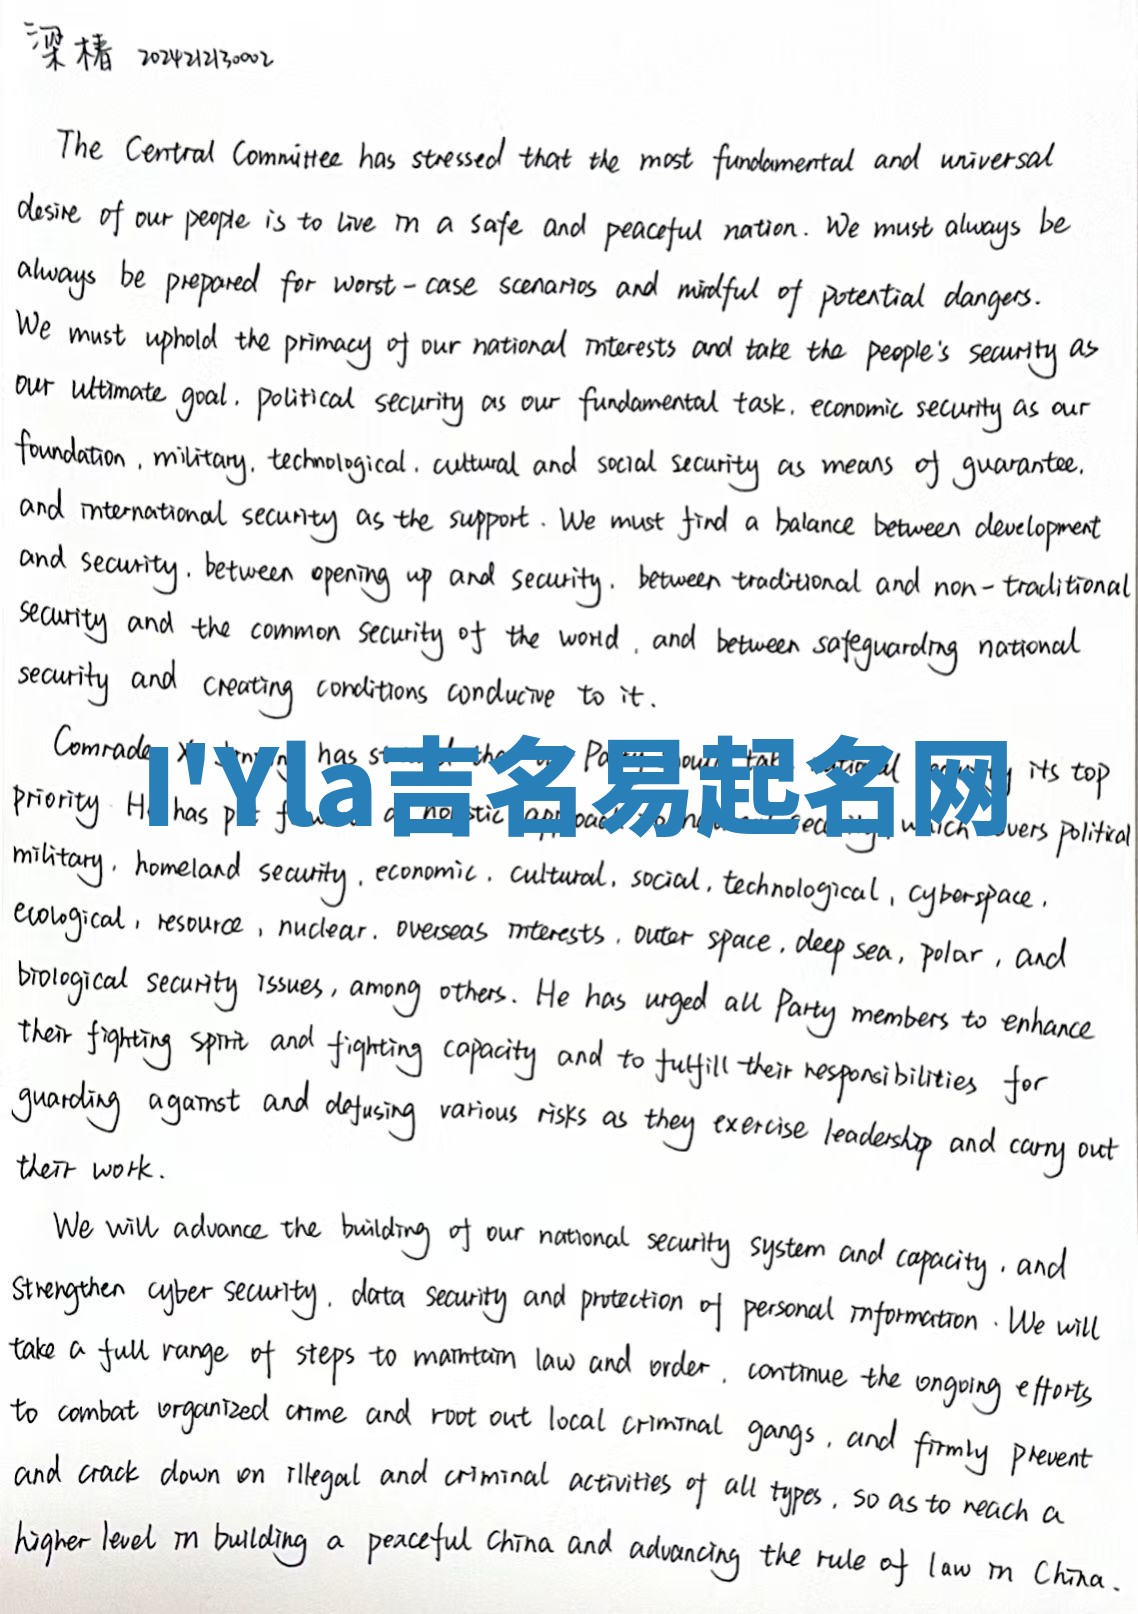 梁椿 2024212130002
The Central Committee has stressed that the most fundamental and universal
desire of our people is to live in a safe and peaceful nation. We must always be
always be prepared for worst-case scenarios and mindful of potential dangers.
We must uphold the primacy of our national interests and take the people's security as
our ultimate goal, political security as our fundamental task, economic security as our
foundation, military, technological, cultural and social security as means of guarantee,
and international security as the support. We must find a balance between development
and security, between opening up and security, between traditional and non-traditional
security and the common security of the world, and between safeguarding national
security and creating conditions conducive to it.
Comrade has its top
I'Yla吉名易起名网
priority He has which political
military, homeland security, economic, cultural, social, technological, cyberspace,
ecological, resource, nuclear, overseas interests, outer space, deep sea, polar, and
biological security issues, among others. He has urged all Party members to enhance
their fighting spirit and fighting capacity and to fulfill their responsibilities for
guarding against and defusing various risks as they exercise leadership and carry out
their work.
We will advance the building of our national security system and capacity, and
strengthen cyber security, data security and protection of personal information. We will
take a full range of steps to maintain law and order, continue the ongoing efforts
to combat organized crime and root out local criminal gangs, and firmly prevent
and crack down on illegal and criminal activities of all types, so as to reach a
higher level in building a peaceful China and advancing the rule of law in China.